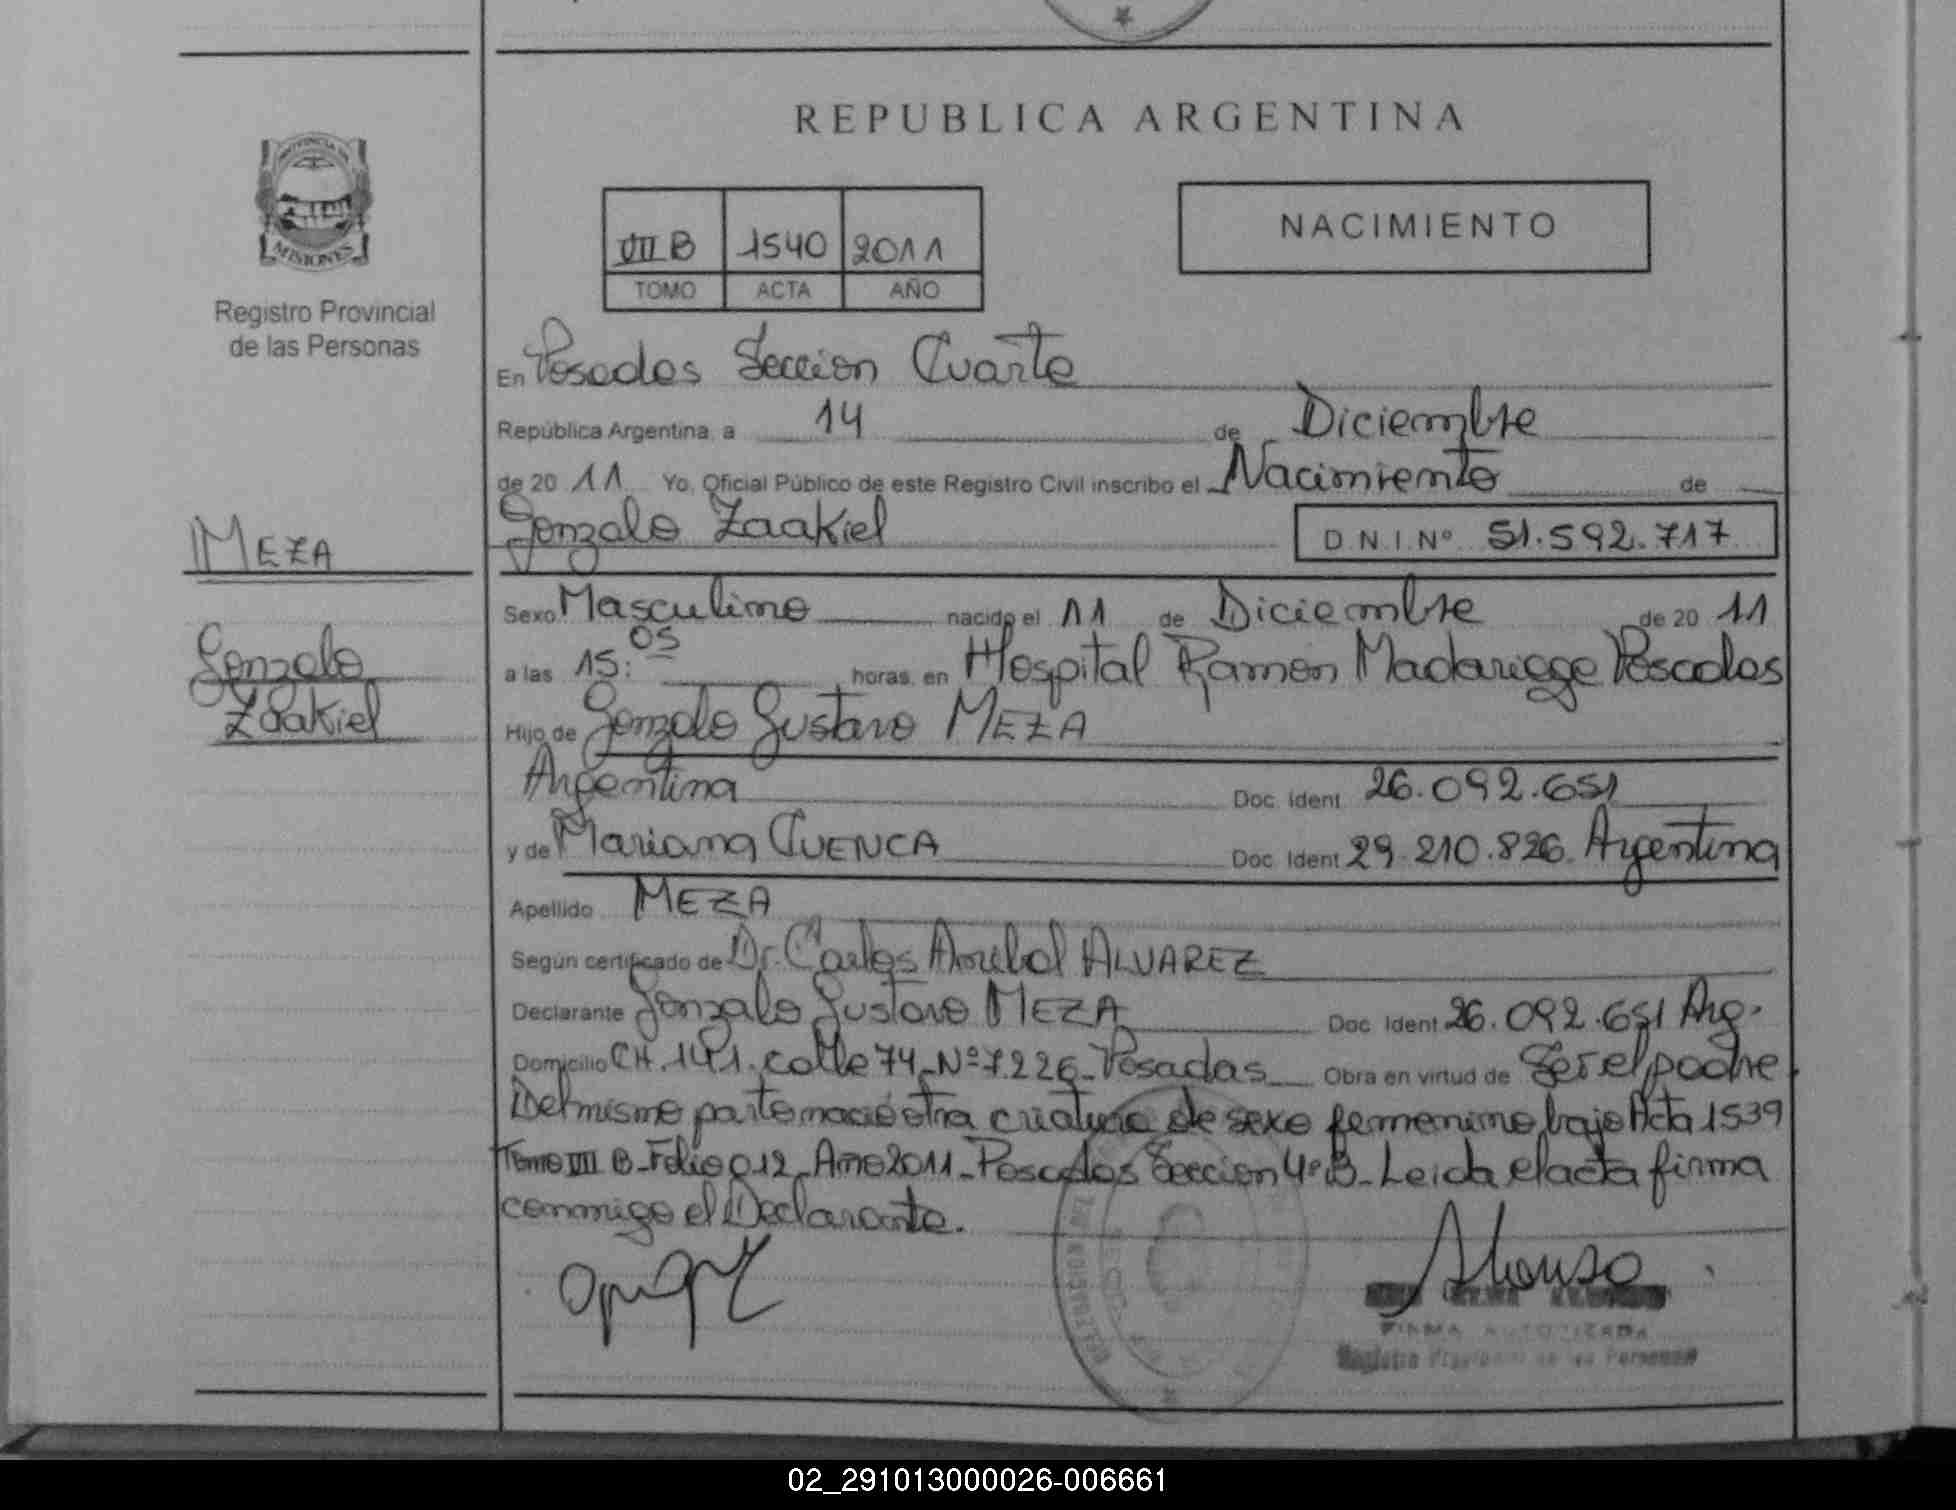 REPUBLICA ARGENTINA
PROVINCIA DE
MISIONES
Registro Provincial
de las Personas
VIII B 1540 2011
TOMO ACTA AÑO
NACIMIENTO
En Posadas Seccion Cuarta
República Argentina, a 14 de Diciembre
de 20 11 Yo, Oficial Público de este Registro Civil inscribo el Nacimiento de
Gonzalo Zaakiel D.N.I.Nº 51.592.717
MEZA
Gonzalo
Zaakiel
Sexo Masculino nacido el 11 de Diciembre de 20 11
a las 15:05 horas, en Hospital Ramon Madariaga Posadas
Hijo de Gonzalo Gustavo MEZA
Argentina Doc. Ident. 26.092.651
y de Mariana CUENCA Doc. Ident 29.210.826 Argentina
Apellido MEZA
Según certificado de Dr. Carlos Anibal ALVAREZ
Declarante Gonzalo Gustavo MEZA Doc. Ident 26.092.651 Arg.
Domicilio CH.141.calle 74-Nº7.226-Posadas Obra en virtud de Ser el padre
Del mismo parto nació otra criatura de sexo femenino, bajo Acta 1539
Tomo VIII B-Folio 012-Año 2011-Posadas Seccion 4º B-Leida el acta firma
conmigo el Declarante.
Alonso
FIRMA AUTORIZADA
Registro Provincial de las Personas
02_291013000026-006661